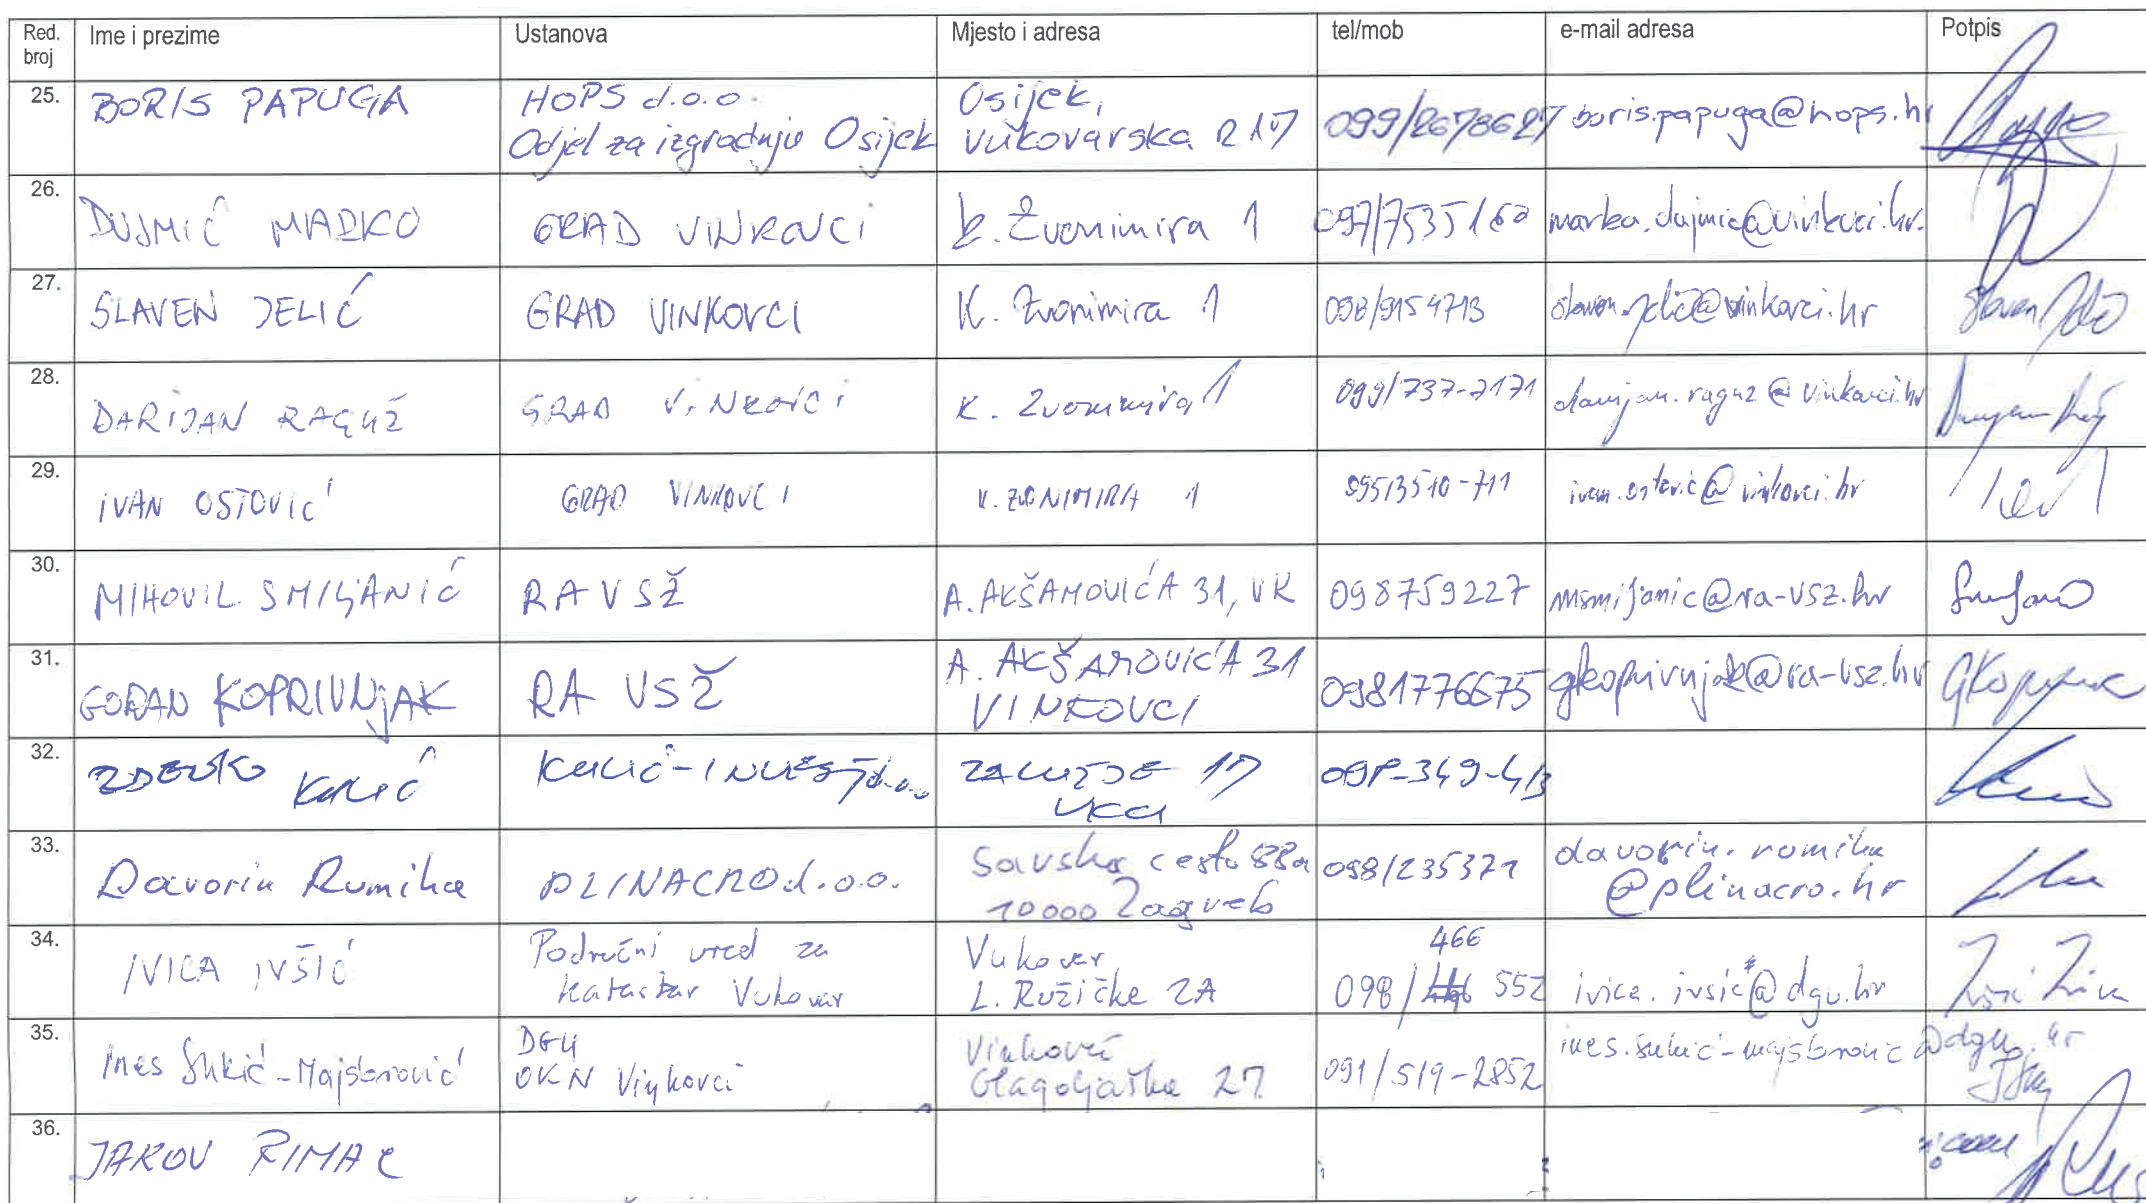 Red. broj Ime i prezime Ustanova Mjesto i adresa tel/mob e-mail adresa Potpis
25. BORIS PAPUGA HOPS d.o.o. Odjel za izgradnju Osijek Osijek, Vukovarska 217 099/2678627 boris.papuga@hops.hr
26. DUJMIĆ MARKO GRAD VINKOVCI K. Zvonimira 1 097/7535160 marko.dujmic@vinkovci.hr.
27. SLAVEN JELIĆ GRAD VINKOVCI K. Zvonimira 1 098/9154713 slaven.jelic@vinkovci.hr Slaven Jelić
28. DARIJAN RAGUŽ GRAD VINKOVCI K. Zvonimira 1 099/737-7171 damjan.raguz@vinkovci.hr
29. IVAN OSTOVIĆ GRAD VINKOVCI K. ZVONIMIRA 1 ivan.ostovic@vinkovci.hr
30. MIHOVIL SMILJANIĆ RA VSŽ A. AKŠAMOVIĆA 31, VK 098759227 msmiljanic@ra-vsz.hr
31. GORAN KOPRIVNJAK RA VSŽ A. AKŠAMOVIĆA 31 VINKOVCI 0981776675 gkoprivnjak@ra-vsz.hr
32. ZDENKO KULIĆ KULIĆ-INVEST d.o.o. ZALUŽJE 17 VKCI 098-349-413
33. Davorin Rumiha PLINACRO d.o.o. Savska cesta 88a 10000 Zagreb 098/235371 davorin.rumiha @plinacro.hr
34. IVICA IVŠIĆ Područni ured za katastar Vukovar Vukovar L. Ružičke 2A 098/466 552 ivica.ivsic@dgu.hr
35. Ines Šukić-Majstorović DGU OKN Vinkovci Vinkovci Glagoljaška 27. 091/519-2852 ines.sukic-majstorovic@dgu.hr
36. JAKOV RIMAC